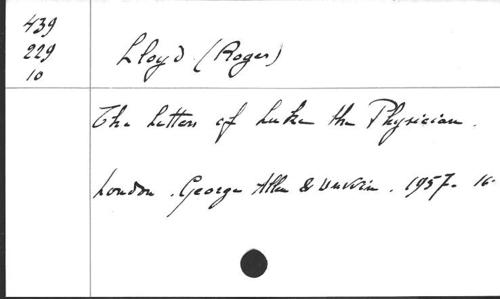 439
229
10
Lloyd (Roger)
The Letters of Luke the Physician.
London. George Allen & Unwin. 1957. 16